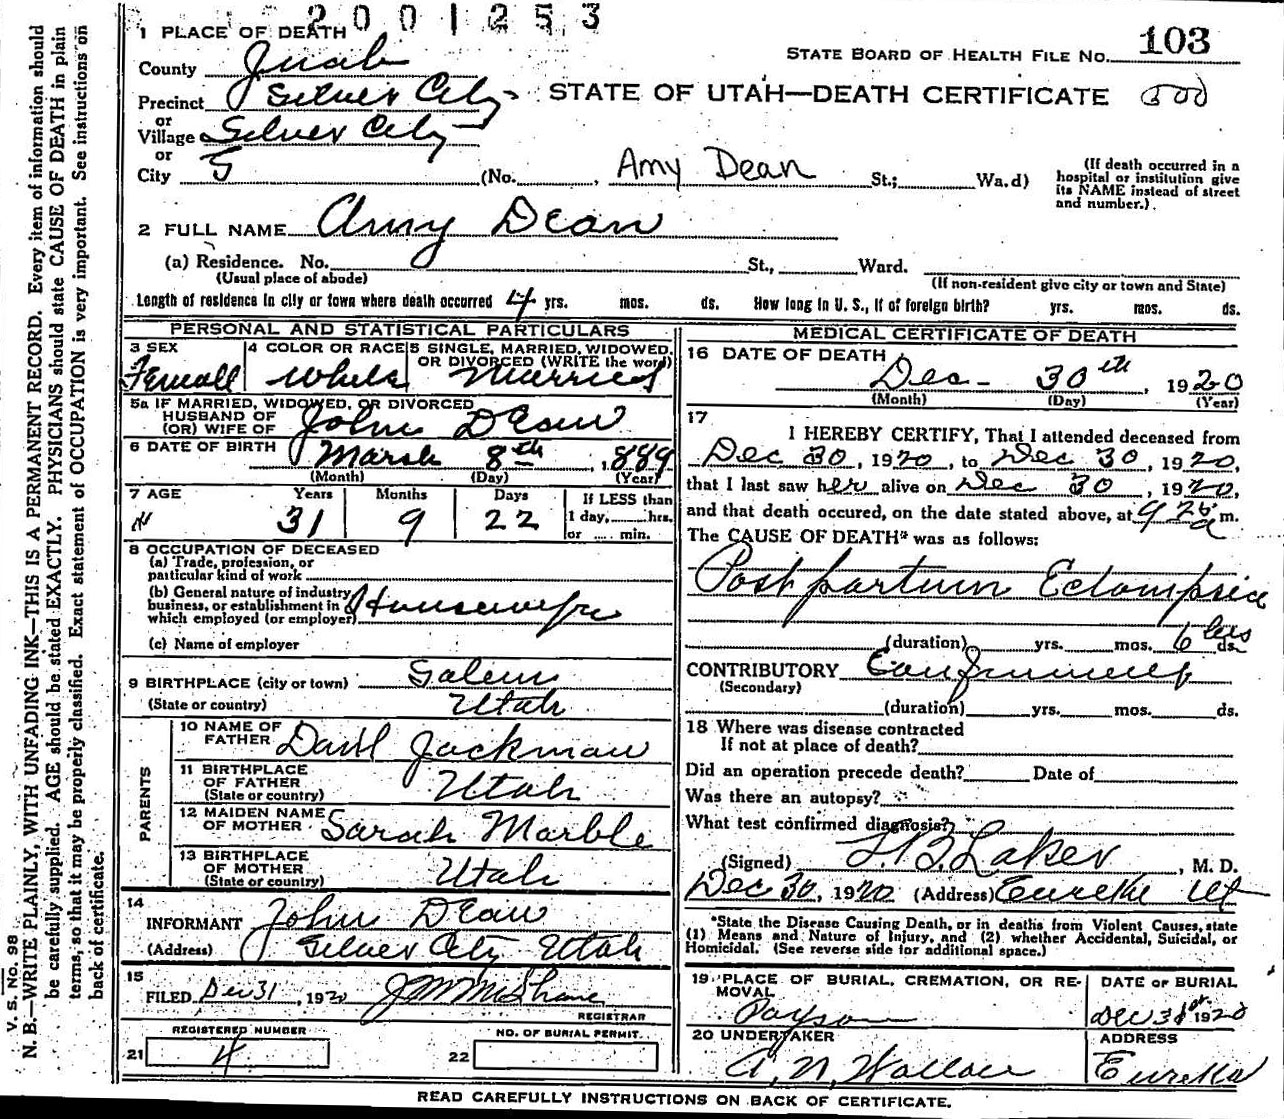 2001253
1 PLACE OF DEATH
STATE BOARD OF HEALTH FILE No. 103
County Juab
STATE OF UTAH—DEATH CERTIFICATE
Precinct Silver City
or
Village Silver City
or
City (No. , Amy Dean St.; Wa.d)
(If death occurred in a
hospital or institution give
its NAME instead of street
and number.)
2 FULL NAME Amy Dean
(a) Residence. No. St., Ward.
(Usual place of abode)
(If non-resident give city or town and State)
Length of residence in city or town where death occurred 4 yrs. mos. ds. How long in U. S., if of foreign birth? yrs. mos. ds.
PERSONAL AND STATISTICAL PARTICULARS
3 SEX
Femall
4 COLOR OR RACE
White
5 SINGLE, MARRIED, WIDOWED,
OR DIVORCED (WRITE the word)
Married
5a IF MARRIED, WIDOWED, OR DIVORCED
HUSBAND OF
(OR) WIFE OF John Dean
6 DATE OF BIRTH
March 8th , 889
(Month) (Day) (Year)
7 AGE Years Months Days
31 9 22
If LESS than
1 day, hrs.
or min.
8 OCCUPATION OF DECEASED
(a) Trade, profession, or
particular kind of work
(b) General nature of industry
business, or establishment in
which employed (or employer) Housewife
(c) Name of employer
9 BIRTHPLACE (city or town) Salem
(State or country) Utah
PARENTS
10 NAME OF
FATHER Jackman
11 BIRTHPLACE
OF FATHER
(State or country) Utah
12 MAIDEN NAME
OF MOTHER Sarah Marble
13 BIRTHPLACE
OF MOTHER
(State or country) Utah
14
INFORMANT John Dean
(Address) Silver City Utah
15
FILED Dec 31 , 1920 J M McShane
REGISTRAR
REGISTERED NUMBER
21 4
NO. OF BURIAL PERMIT.
22
MEDICAL CERTIFICATE OF DEATH
16 DATE OF DEATH
Dec - 30th , 1920
(Month) (Day) (Year)
17
I HEREBY CERTIFY, That I attended deceased from
Dec 30, 1920, to Dec 30, 1920,
that I last saw her alive on Dec 30, 1920,
and that death occured, on the date stated above, at 9 25 a m.
The CAUSE OF DEATH* was as follows:
Post partum Eclampsia
(duration) yrs. mos. 6 ds.
CONTRIBUTORY Confinement
(Secondary)
(duration) yrs. mos. ds.
18 Where was disease contracted
If not at place of death?
Did an operation precede death? Date of
Was there an autopsy?
What test confirmed diagnosis?
(Signed) Laker, M. D.
Dec 30, 1920 (Address) Eureka Ut
*State the Disease Causing Death, or in deaths from Violent Causes, state
(1) Means and Nature of Injury, and (2) whether Accidental, Suicidal, or
Homicidal. (See reverse side for additional space.)
19 PLACE OF BURIAL, CREMATION, OR RE-
MOVAL
Payson
DATE OF BURIAL
Dec 31st 1920
20 UNDERTAKER
A. N. Wallace
ADDRESS
Eureka
READ CAREFULLY INSTRUCTIONS ON BACK OF CERTIFICATE.
V. S. No. 98
N. B.—WRITE PLAINLY, WITH UNFADING INK—THIS IS A PERMANENT RECORD. Every item of information should
be carefully supplied. AGE should be stated EXACTLY. PHYSICIANS should state CAUSE OF DEATH in plain
terms, so that it may be properly classified. Exact statement of OCCUPATION is very important. See instructions on
back of certificate.